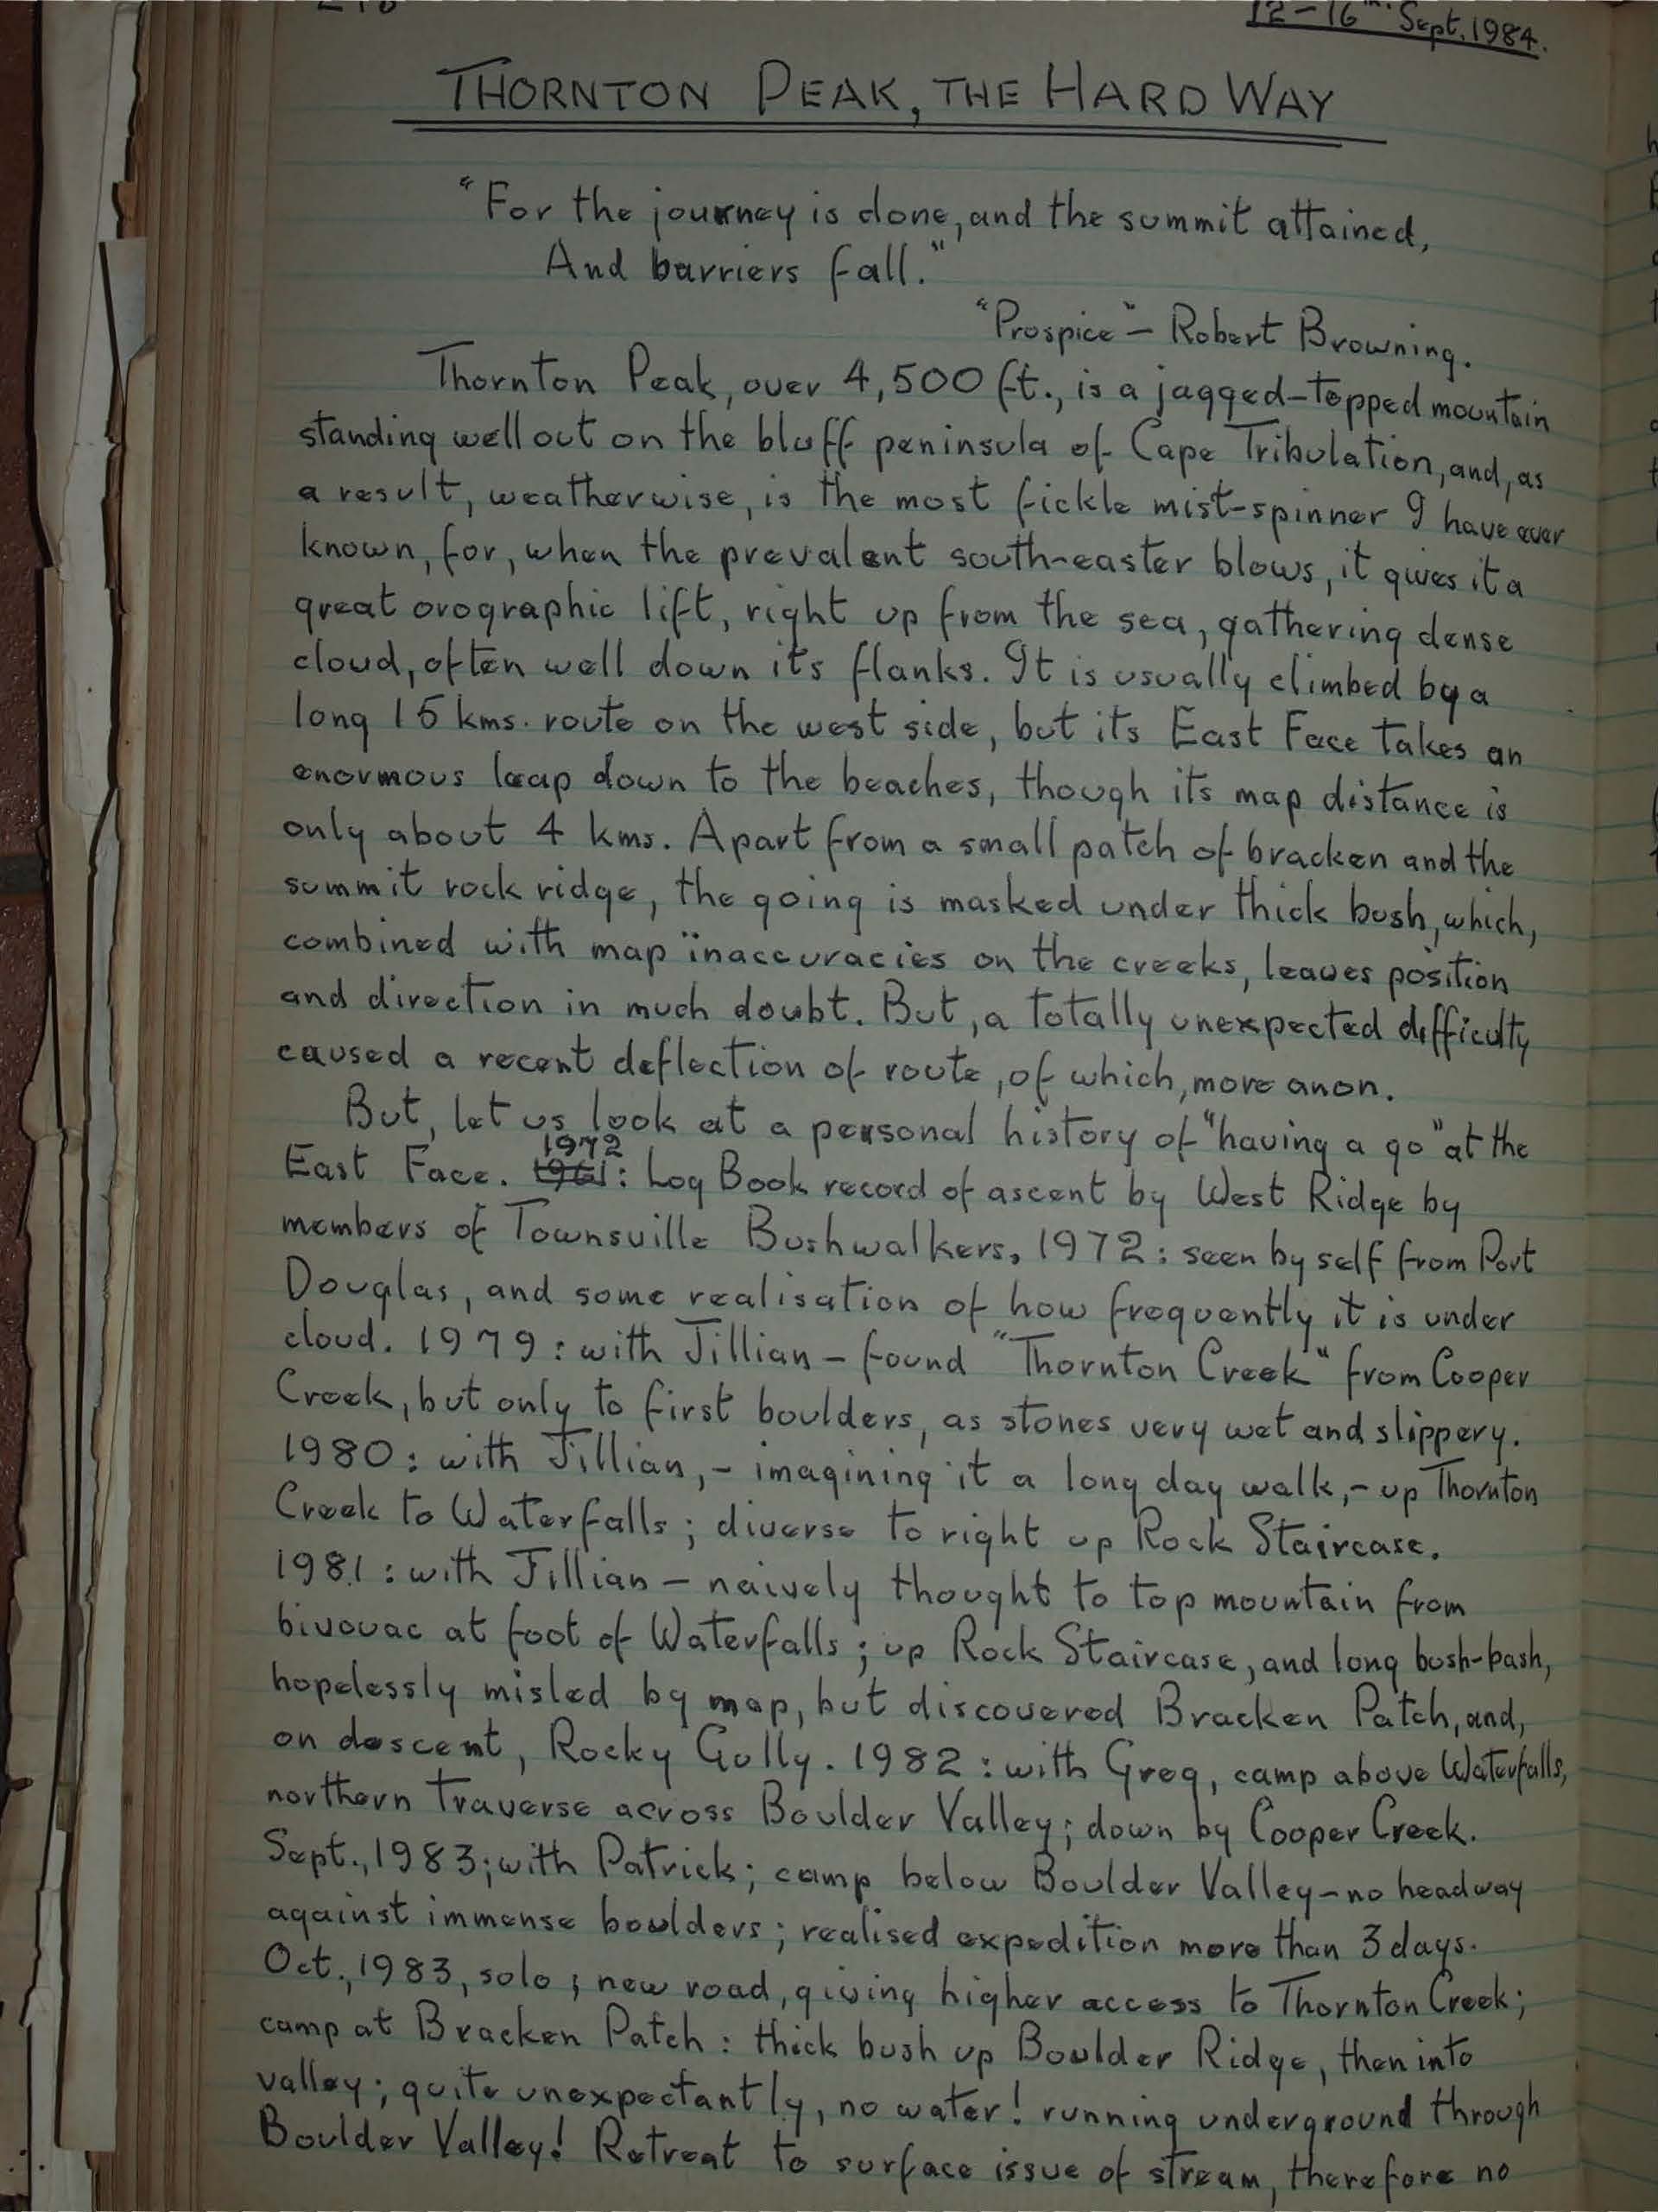 12-16th. Sept, 1984.
THORNTON PEAK, THE HARD WAY
"For the journey is done, and the summit attained,
And barriers fall."
"Prospice" - Robert Browning.
Thornton Peak, over 4,500 ft., is a jagged-topped mountain
standing well out on the bluff peninsula of Cape Tribulation, and, as
a result, weatherwise, is the most fickle mist-spinner I have ever
known, for, when the prevalent south-easter blows, it gives it a
great orographic lift, right up from the sea, gathering dense
cloud, often well down its flanks. It is usually climbed by a
long 15 kms. route on the west side, but its East Face takes an
enormous leap down to the beaches, though its map distance is
only about 4 kms. Apart from a small patch of bracken and the
summit rock ridge, the going is masked under thick bush, which,
combined with map inaccuracies on the creeks, leaves position
and direction in much doubt. But, a totally unexpected difficulty
caused a recent deflection of route, of which, more anon.
But, let us look at a personal history of "having a go" at the
East Face. 1972 1961: Log Book record of ascent by West Ridge by
members of Townsville Bushwalkers, 1972: seen by self from Port
Douglas, and some realisation of how frequently it is under
cloud. 1979: with Jillian - found "Thornton Creek" from Cooper
Creek, but only to first boulders, as stones very wet and slippery.
1980: with Jillian, - imagining it a long day walk, - up Thornton
Creek to Waterfalls; diverse to right up Rock Staircase.
1981: with Jillian - naively thought to top mountain from
bivouac at foot of Waterfalls; up Rock Staircase, and long bush-bash,
hopelessly misled by map, but discovered Bracken Patch, and,
on descent, Rocky Gully. 1982: with Greg, camp above Waterfalls,
northern traverse across Boulder Valley; down by Cooper Creek.
Sept., 1983; with Patrick; camp below Boulder Valley - no headway
against immense boulders; realised expedition more than 3 days.
Oct., 1983, solo; new road, giving higher access to Thornton Creek;
camp at Bracken Patch: thick bush up Boulder Ridge, then into
valley; quite unexpectantly, no water! running underground through
Boulder Valley! Retreat to surface issue of stream, therefore no